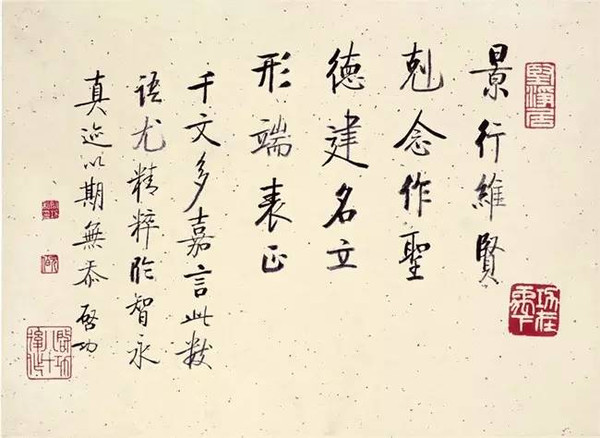 景行維賢
剋念作聖
德建名立
形端表正
千文多嘉言此數
語尤精粹臨智永
真迹以期無忝啓功